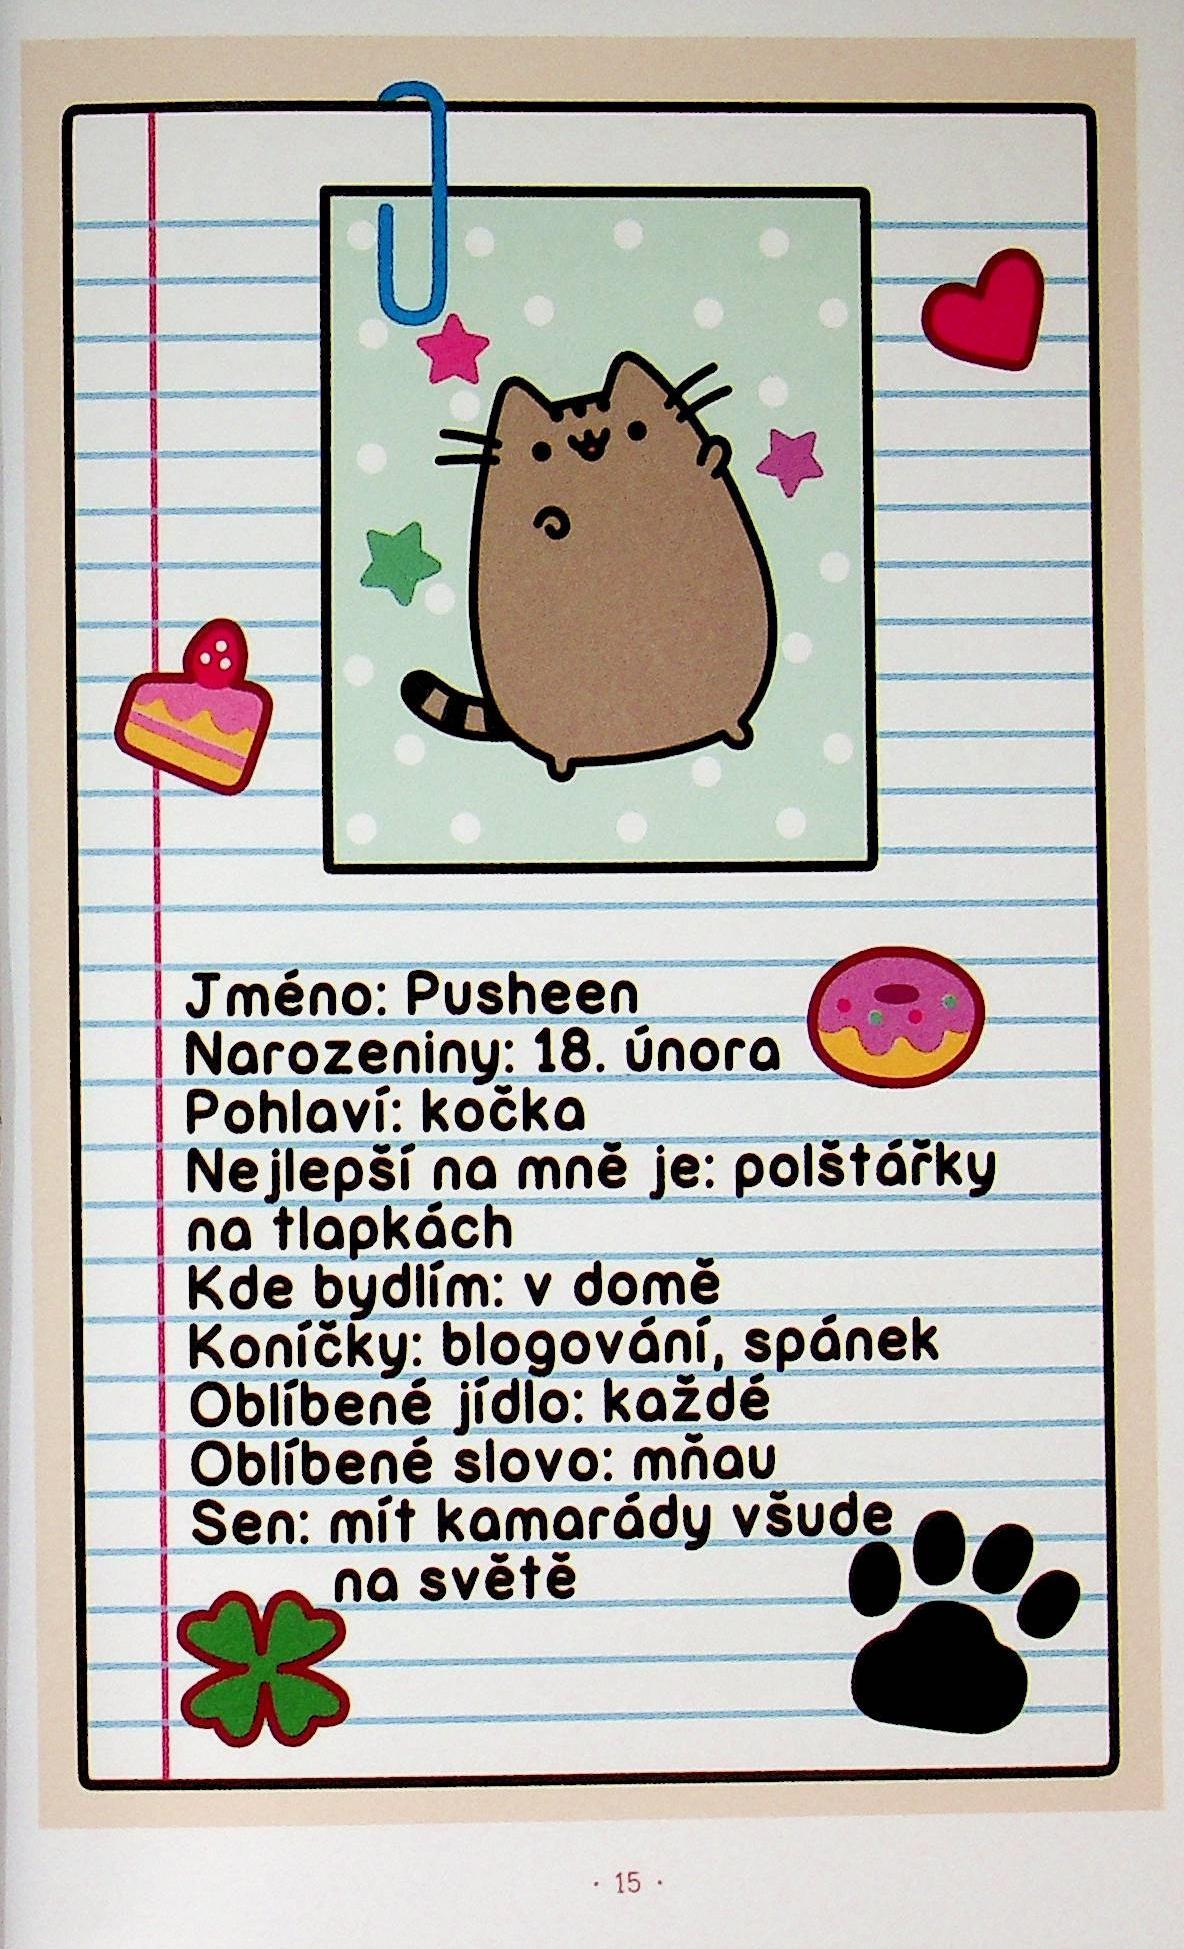 Jméno: Pusheen
Narozeniny: 18. února
Pohlaví: kočka
Nejlepší na mně je: polštářky
na tlapkách
Kde bydlím: v domě
Koníčky: blogování, spánek
Oblíbené jídlo: každé
Oblíbené slovo: mňau
Sen: mít kamarády všude
na světě
· 15 ·